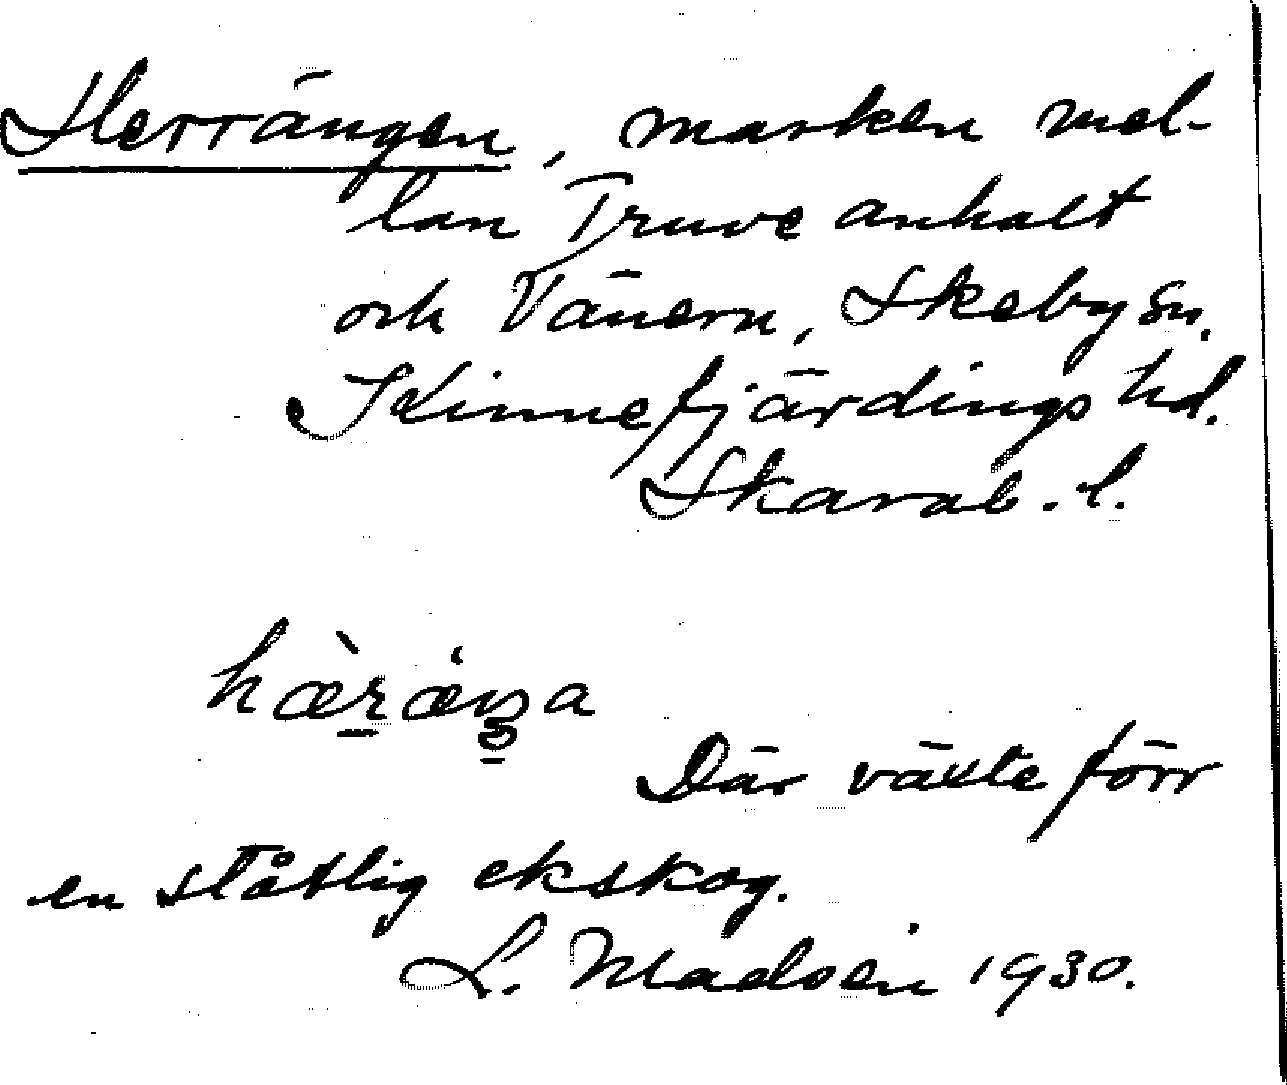 Herrängen, marken mel-
lan Truve anhalt
och Vänern, Skeby sn,
Kinnefjärdings hd.
Skarab. l.
hæ̀ræ̇ŋa
Där växte förr
en ståtlig ekskog.
L. Madsén 1930.